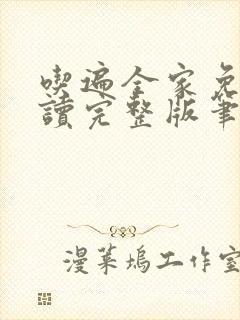 喫遍全家免
讀完整版筆
漫葉塢工作室